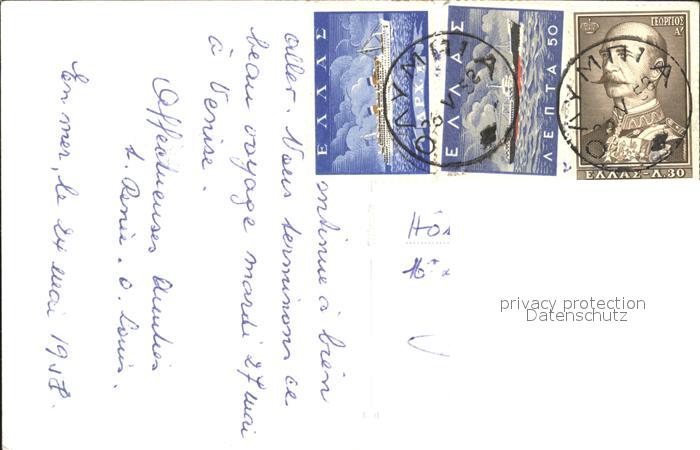 En mer, le 24 mai 1958.
ntinue à bien
aller. Nous terminons ce
beau voyage mardi 27 mai
à Venise.
Affectueuses Amitiés
t. Renée. o. Louis.
ΕΛΛΑΣ
ΕΛΛΑΣ
ΛΕΠΤΑ 50
ΓΕΩΡΓΙΟΣ
Α'
ΕΛΛΑΣ-Λ.30
ΟΛΥΜΠΙΑ
ΟΛΥΜΠΙΑ
Hôs
privacy protection
Datenschutz